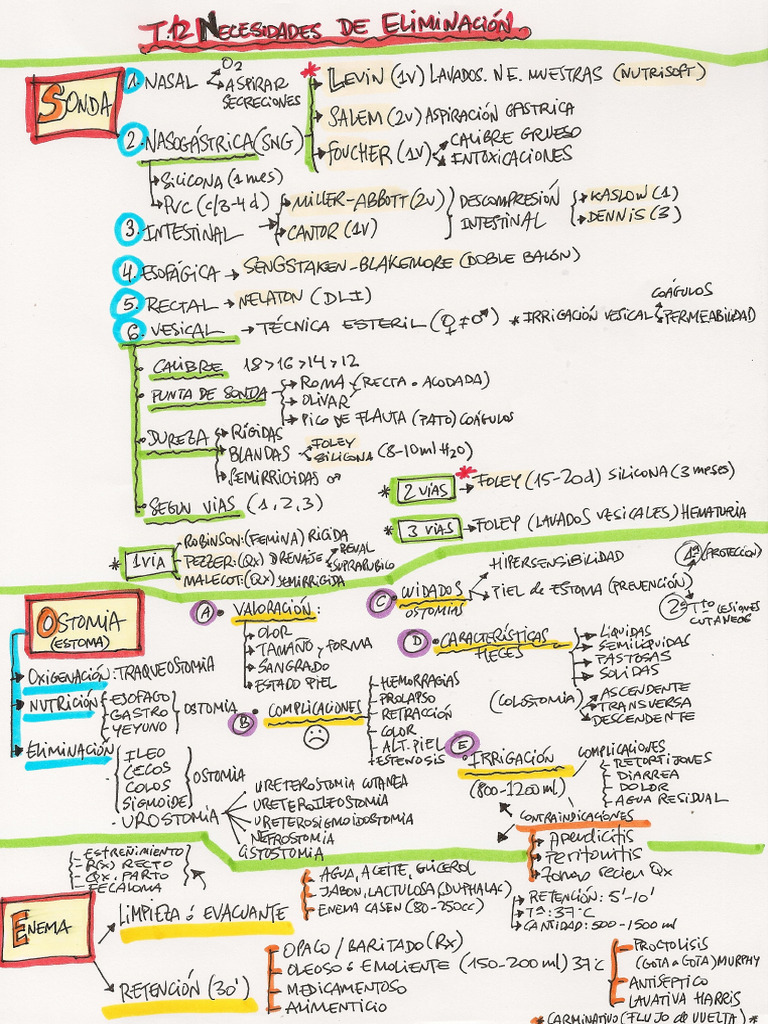 T.12 NECESIDADES DE ELIMINACIÓN.
SONDA
1. NASAL
O2
ASPIRAR SECRECIONES
2. NASOGÁSTRICA (SNG)
SILICONA (1 MES)
PVC (c/3-4 d)
* LEVIN (1V) LAVADOS. N.E. MUESTRAS (NUTRISOFT)
SALEM (2V) ASPIRACIÓN GÁSTRICA
FOUCHER (1V)
CALIBRE GRUESO
INTOXICACIONES
3. INTESTINAL
MILLER-ABBOTT (2V)
CANTOR (1V)
DESCOMPRESIÓN INTESTINAL
KASLOW (1)
DENNIS (3)
4. ESOFÁGICA → SENGSTAKEN-BLAKEMORE (DOBLE BALÓN)
5. RECTAL → NELATON (DLI)
6. VESICAL → TÉCNICA ESTERIL (♀≠♂)
* IRRIGACIÓN VESICAL
COÁGULOS
PERMEABILIDAD
CALIBRE 18>16>14>12
PUNTA DE SONDA
ROMA (RECTA o ACODADA)
OLIVAR
PICO DE FLAUTA (PATO) COÁGULOS
DUREZA
RÍGIDAS
BLANDAS
FOLEY SILICONA (8-10ml H2O)
SEMIRRIGIDAS ♂
SEGÚN VÍAS (1,2,3)
* 2 VÍAS * → FOLEY (15-20d) SILICONA (3 meses)
* 3 VÍAS → FOLEY (LAVADOS VESICALES) HEMATURIA
* 1 VÍA
ROBINSON: (FEMINA) RÍGIDA
PEZZER: (Qx) DRENAJE
RENAL
SUPRAPUBICO
MALECOT: (Qx) SEMIRRIGIDA
OSTOMIA
(ESTOMA)
OXIGENACIÓN: TRAQUEOSTOMIA
NUTRICIÓN
ESOFAGO
GASTRO
YEYUNO
OSTOMIA
ELIMINACIÓN
ILEO
CECOS
COLOS
SIGMOIDE
OSTOMIA
UROSTOMIA
URETEROSTOMIA CUTANEA
URETEROILEOSTOMIA
URETEROSIGMOIDOSTOMIA
NEFROSTOMIA
CISTOSTOMIA
A VALORACIÓN:
OLOR
TAMAÑO y FORMA
SANGRADO
ESTADO PIEL
B COMPLICACIONES
HEMORRAGIAS
PROLAPSO
RETRACCIÓN
COLOR
ALT. PIEL
ESTENOSIS
C CUIDADOS OSTOMIAS
HIPERSENSIBILIDAD
PIEL de ESTOMA (PREVENCIÓN)
1ª (PROTECCIÓN)
2ª TTO (LESIONES CUTÁNEOS)
D CARACTERÍSTICAS HECES
LIQUIDAS
SEMILIQUIDAS
PASTOSAS
SOLIDAS
(COLOSTOMIA)
ASCENDENTE
TRANSVERSA
DESCENDENTE
E IRRIGACIÓN
(800-1200 ml)
COMPLICACIONES
RETORTIJONES
DIARREA
DOLOR
AGUA RESIDUAL
CONTRAINDICACIONES
APENDICITIS
PERITONITIS
ZONAS recien Qx
ENEMA
LIMPIEZA ó EVACUANTE
ESTREÑIMIENTO
R(x) RECTO
QX. PARTO
FECALOMA
AGUA, ACEITE, GLICEROL
JABON, LACTULOSA (DUPHALAC)
ENEMA CASEN (80-250cc)
RETENCIÓN: 5'-10'
Tª: 37ºC
CANTIDAD: 500-1500 ml
RETENCIÓN (30')
OPACO / BARITADO (RX)
OLEOSO ó EMOLIENTE (150-200 ml) 37ºC
MEDICAMENTOSO
ALIMENTICIO
PROCTOLISIS
(GOTA a GOTA) MURPHY
ANTISEPTICO
LAVATIVA HARRIS
* CARMINATIVO (FLUJO de VUELTA) *